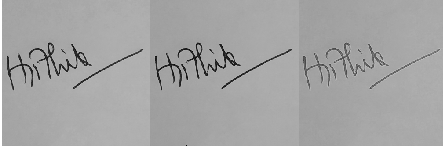 Hrithik Hrithik Hrithik